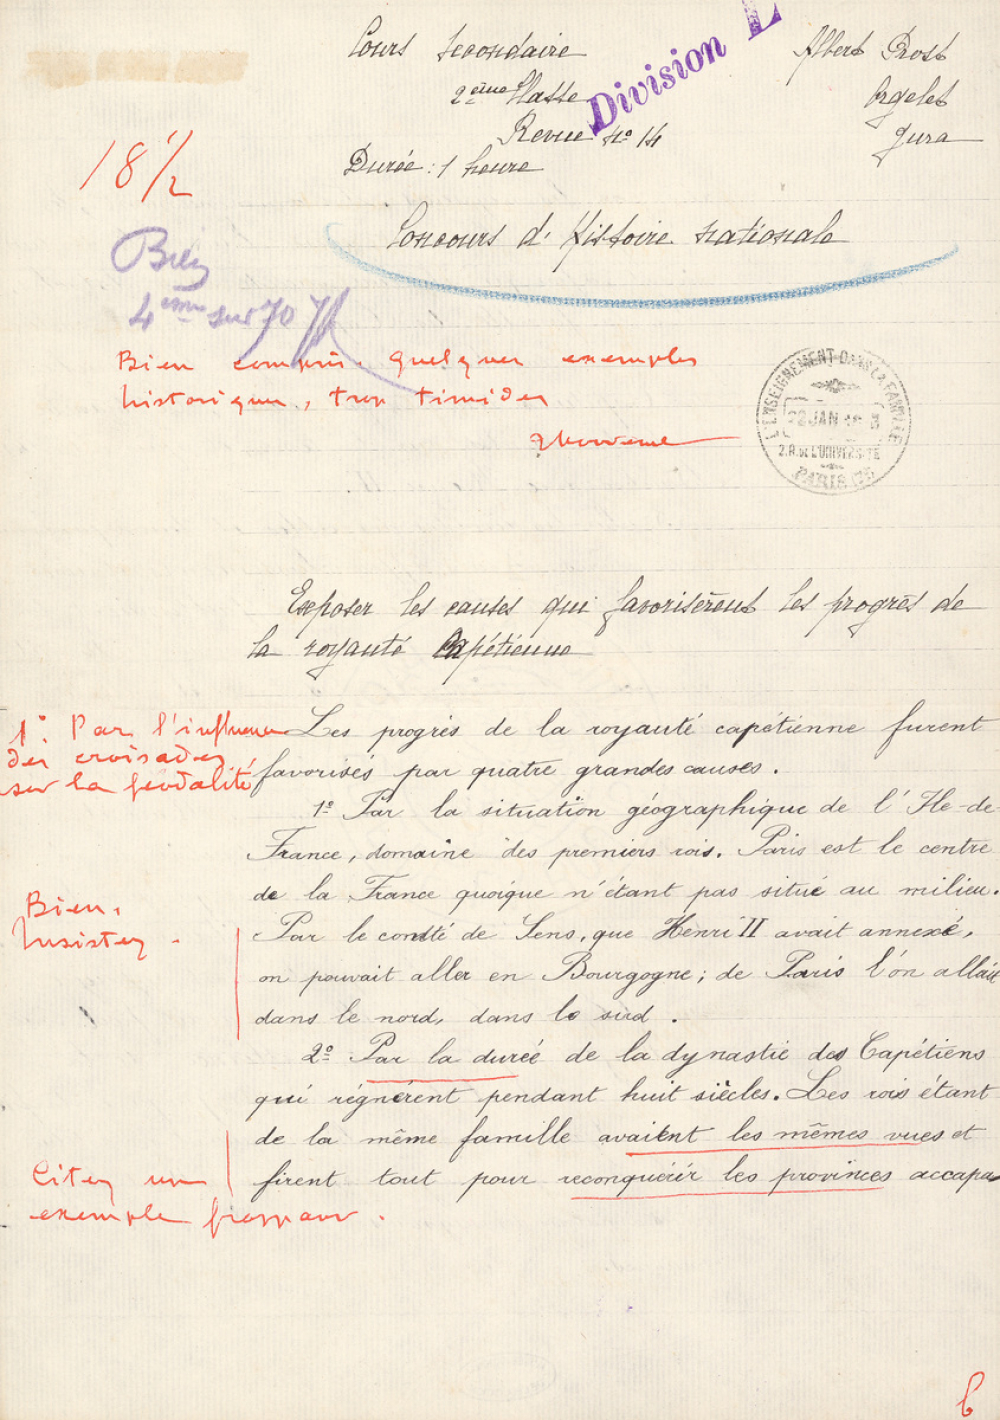 Cours secondaire
2ème Classe
Revue No 14
Durée : 1 heure
Division L
Albert Prost
Orgelet
Jura
18 1/2
Concours d'Histoire nationale
Bien
4ème sur 70
Bien compris. quelques exemples
historiques, trop timides
L'ENSEIGNEMENT DANS LA FAMILLE
JAN
2.R. DE L'UNIVERSITÉ
PARIS
Exposer les causes qui favorisèrent les progrès de
la royauté Capétienne
1° Par l'influence
des croisades
sur la féodalité
Les progrès de la royauté capétienne furent
favorisés par quatre grandes causes.
1° Par la situation géographique de l'Ile-de-
France, domaine des premiers rois. Paris est le centre
de la France quoique n'étant pas situé au milieu.
Bien.
Insistez.
Par le comté de Sens, que Henri II avait annexé,
on pouvait aller en Bourgogne ; de Paris l'on allait
dans le nord, dans le sud.
2° Par la durée de la dynastie des Capétiens
qui régnèrent pendant huit siècles. Les rois étant
de la même famille avaient les mêmes vues et
firent tout pour reconquérir les provinces accapa
Citez un
exemple frappant.